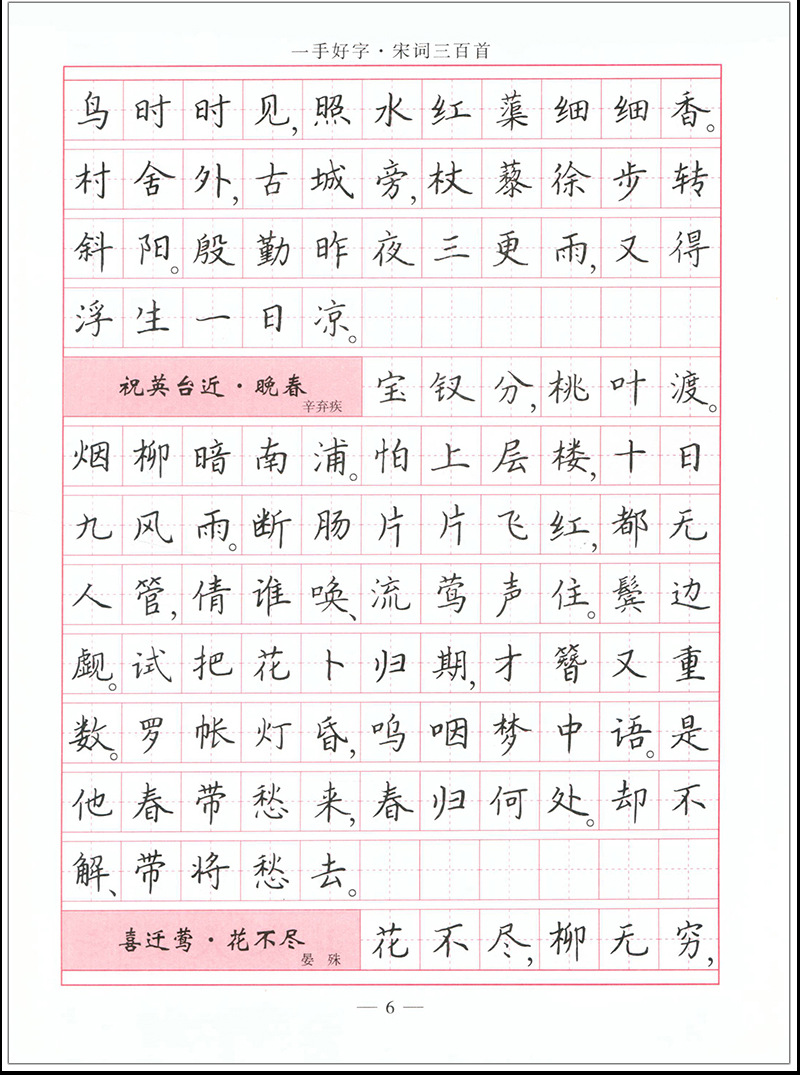 一手好字·宋词三百首
鸟时时见,照水红蕖细细香。
村舍外,古城旁,杖藜徐步转
斜阳。殷勤昨夜三更雨,又得
浮生一日凉。
祝英台近·晚春 辛弃疾 宝钗分,桃叶渡。
烟柳暗南浦。怕上层楼,十日
九风雨。断肠片片飞红,都无
人管,倩谁唤、流莺声住。鬓边
觑。试把花卜归期,才簪又重
数。罗帐灯昏,呜咽梦中语。是
他春带愁来,春归何处。却不
解、带将愁去。
喜迁莺·花不尽 晏殊 花不尽,柳无穷,
— 6 —